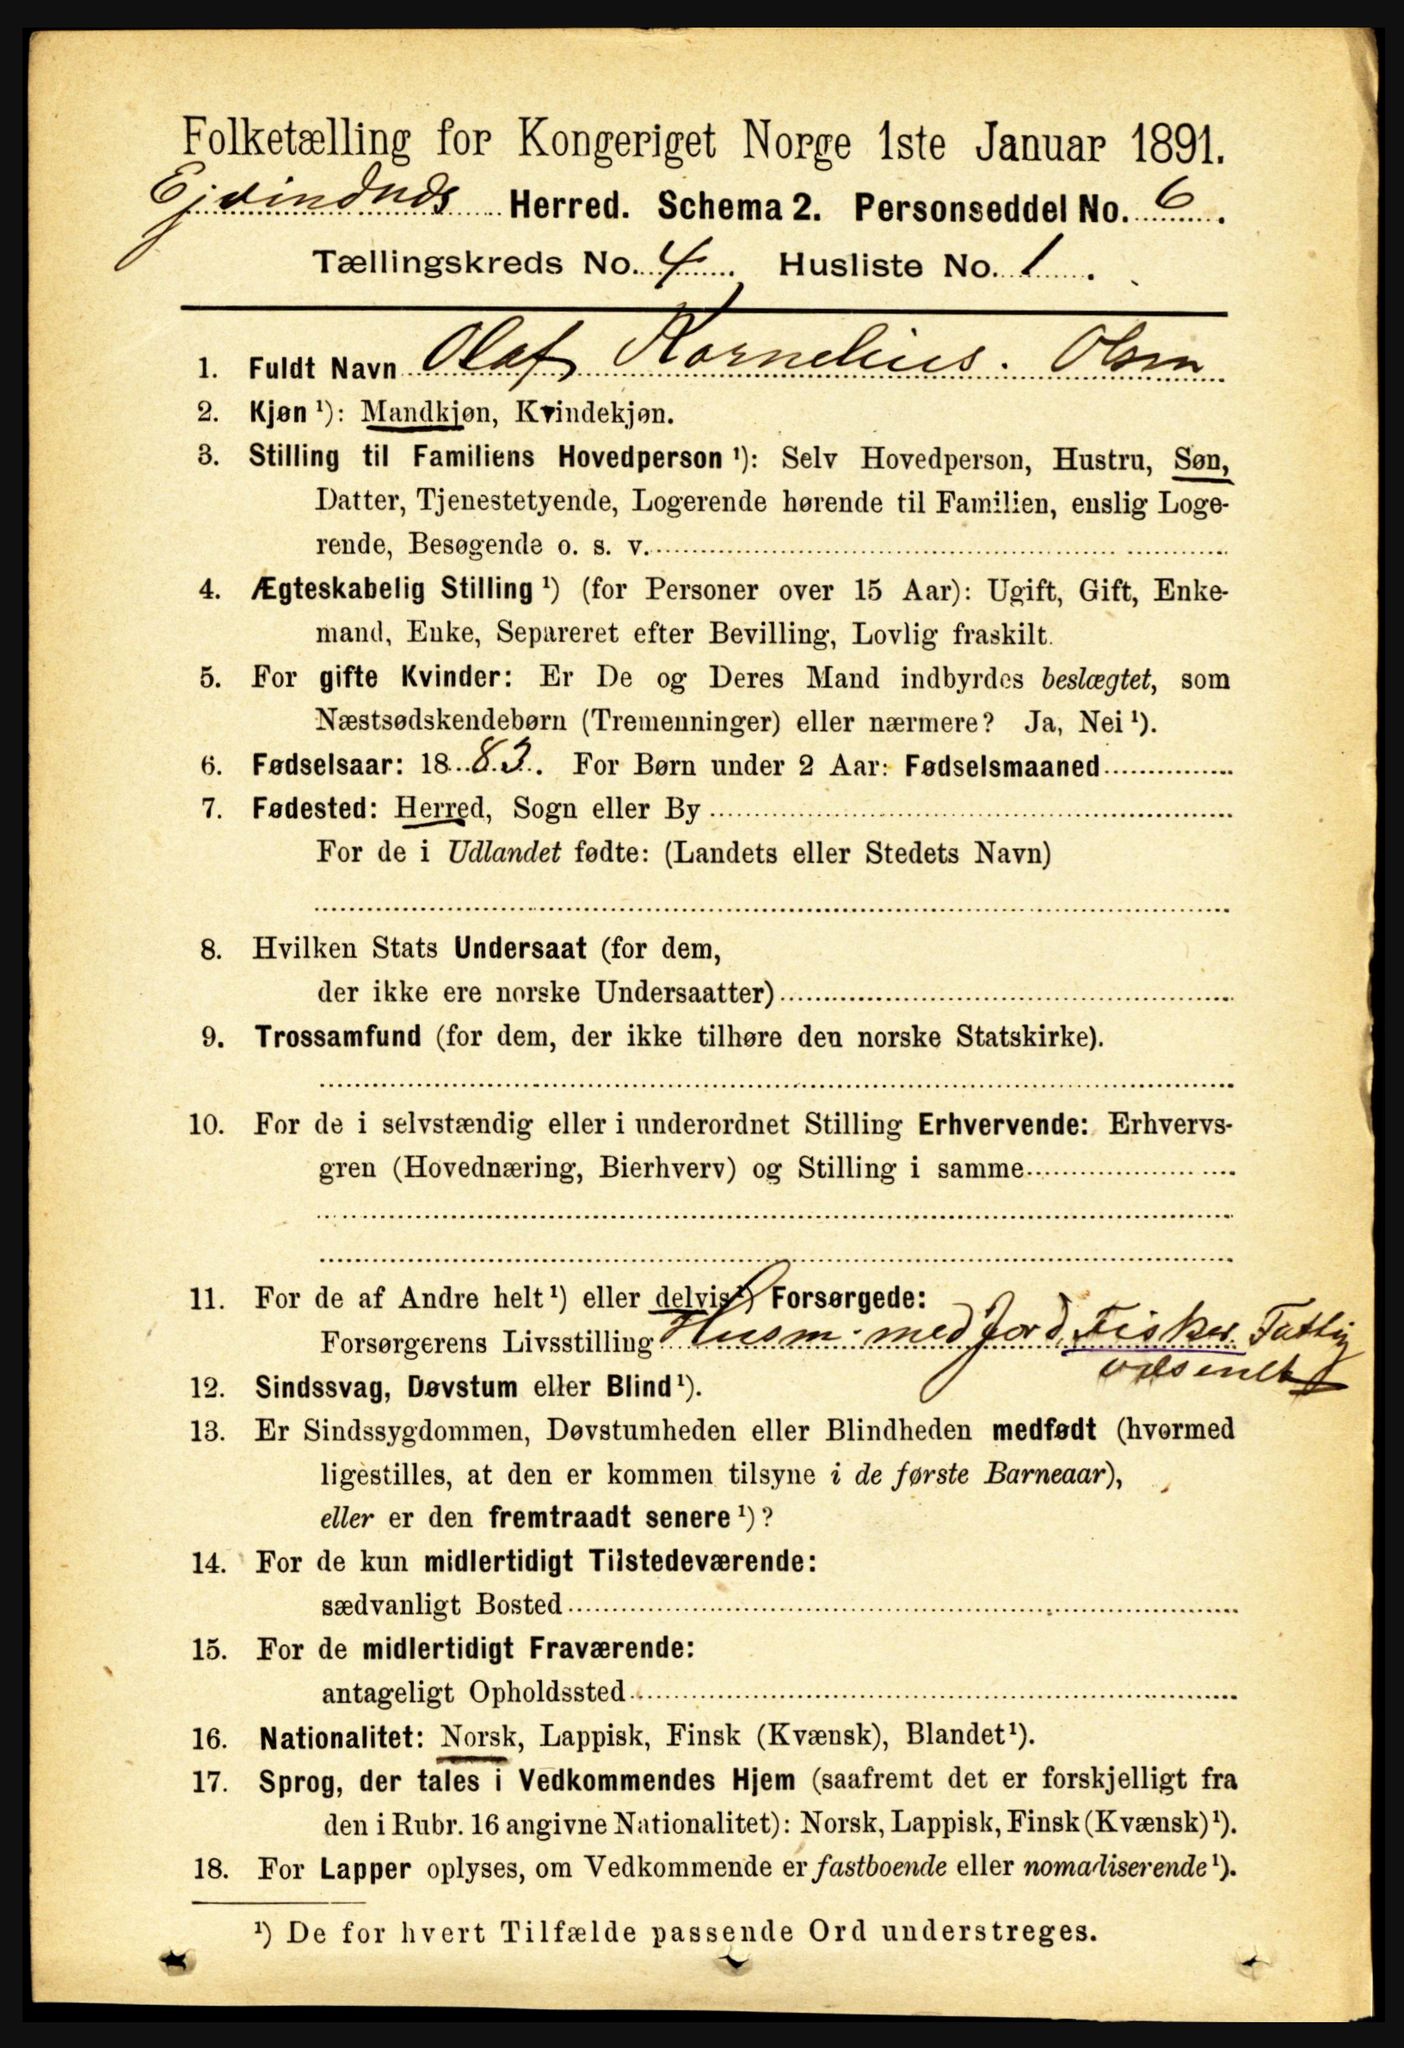 Folketælling for Kongeriget Norge 1ste Januar 1891.
Ejvindvds Herred. Schema 2. Personseddel No. 6.
Tællingskreds No. 4. Husliste No. 1.
1. Fuldt Navn Olaf Kornelius. Olsen
2. Kjøn ¹): Mandkjøn, Kvindekjøn.
3. Stilling til Familiens Hovedperson ¹): Selv Hovedperson, Hustru, Søn,
Datter, Tjenestetyende, Logerende hørende til Familien, enslig Loge-
rende, Besøgende o. s. v.
4. Ægteskabelig Stilling ¹) (for Personer over 15 Aar): Ugift, Gift, Enke-
mand, Enke, Separeret efter Bevilling, Lovlig fraskilt.
5. For gifte Kvinder: Er De og Deres Mand indbyrdes beslægtet, som
Næstsødskendebørn (Tremenninger) eller nærmere? Ja, Nei ¹).
6. Fødselsaar: 1883. For Børn under 2 Aar: Fødselsmaaned
7. Fødested: Herred, Sogn eller By
For de i Udlandet fødte: (Landets eller Stedets Navn)
8. Hvilken Stats Undersaat (for dem,
der ikke ere norske Undersaatter)
9. Trossamfund (for dem, der ikke tilhøre den norske Statskirke).
10. For de i selvstændig eller i underordnet Stilling Erhvervende: Erhvervs-
gren (Hovednæring, Bierhverv) og Stilling i samme
11. For de af Andre helt ¹) eller delvis ¹) Forsørgede:
Forsørgerens Livsstilling Husm. med Jord, Fisker. Fattig
12. Sindssvag, Døvstum eller Blind ¹).
13. Er Sindssygdommen, Døvstumheden eller Blindheden medfødt (hvormed
ligestilles, at den er kommen tilsyne i de første Barneaar),
eller er den fremtraadt senere ¹)?
14. For de kun midlertidigt Tilstedeværende:
sædvanligt Bosted
15. For de midlertidigt Fraværende:
antageligt Opholdssted
16. Nationalitet: Norsk, Lappisk, Finsk (Kvænsk), Blandet ¹).
17. Sprog, der tales i Vedkommendes Hjem (saafremt det er forskjelligt fra
den i Rubr. 16 angivne Nationalitet): Norsk, Lappisk, Finsk (Kvænsk) ¹).
18. For Lapper oplyses, om Vedkommende er fastboende eller nomadiserende ¹).
¹) De for hvert Tilfælde passende Ord understreges.